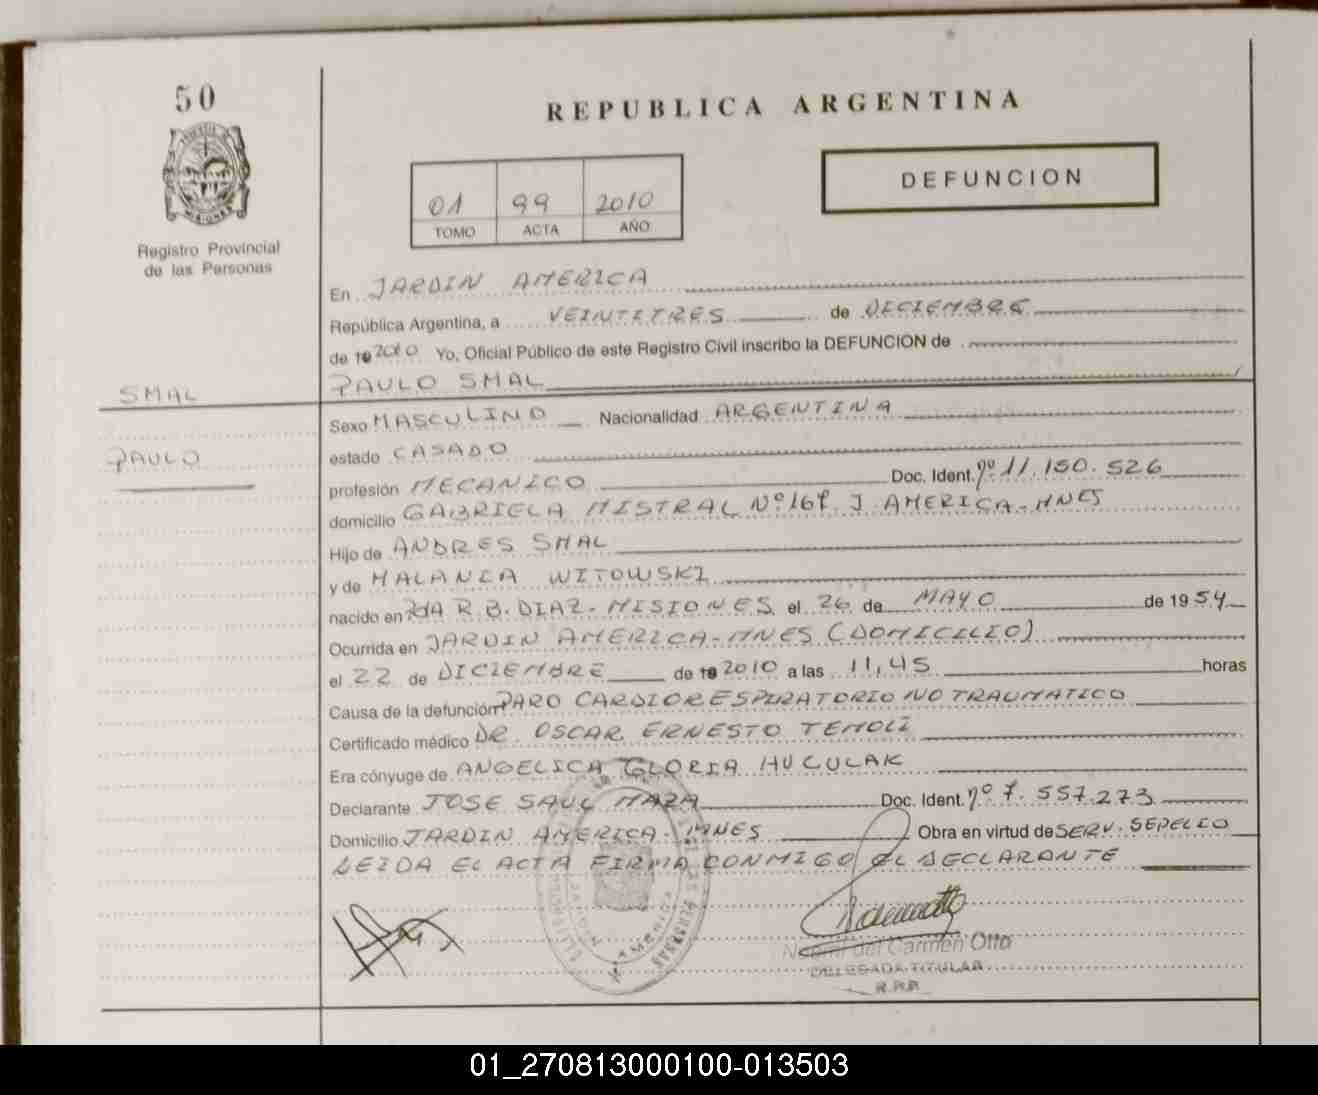 50
REPUBLICA ARGENTINA
DEFUNCION
01 99 2010
TOMO ACTA AÑO
Registro Provincial
de las Personas
En JARDIN AMERICA
República Argentina, a VEINTITRES de DICIEMBRE
de 19 2010 Yo, Oficial Público de este Registro Civil inscribo la DEFUNCION de
SMAL
PAULO SMAL
Sexo MASCULINO Nacionalidad ARGENTINA
PAULO
estado CASADO
profesión MECANICO Doc. Ident. Nº 11.150.526
domicilio GABRIELA MISTRAL Nº J. AMERICA-MNES
Hijo de ANDRES SMAL
y de MALANIA WITOWSKI
nacido en Pda R.B. DIAZ-MISIONES el 26 de MAYO de 1954
Ocurrida en JARDIN AMERICA-MNES (DOMICILIO)
el 22 de DICIEMBRE de 19 2010 a las 11,45 horas
Causa de la defunción PARO CARDIORESPIRATORIO NO TRAUMATICO
Certificado médico DR. OSCAR ERNESTO TEMOLI
Era cónyuge de ANGELICA GLORIA HUCULAK
Declarante JOSE SAUL MAZA Doc. Ident. Nº 7.557.273
Domicilio JARDIN AMERICA-MNES Obra en virtud de SERV. SEPELIO
LEIDA EL ACTA FIRMA CONMIGO EL DECLARANTE
del Carmen Otto
DELEGADA TITULAR
R.P.P.
01_270813000100-013503